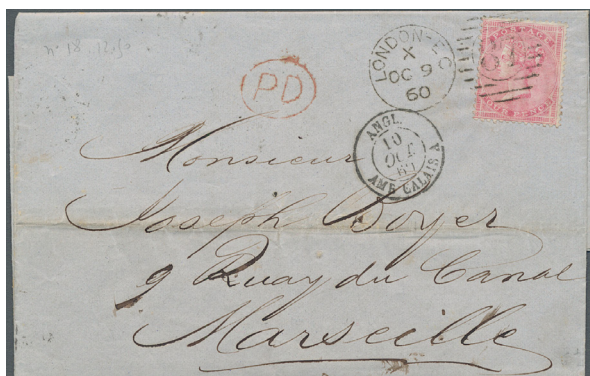 n° 18.
PD
LONDON-EC
X
OC 9
60
POSTAGE
ANGL.
10
OCT.
60
AMB. CALAIS
Monsieur
Joseph Boyer
9 Quay du Canal
Marseille